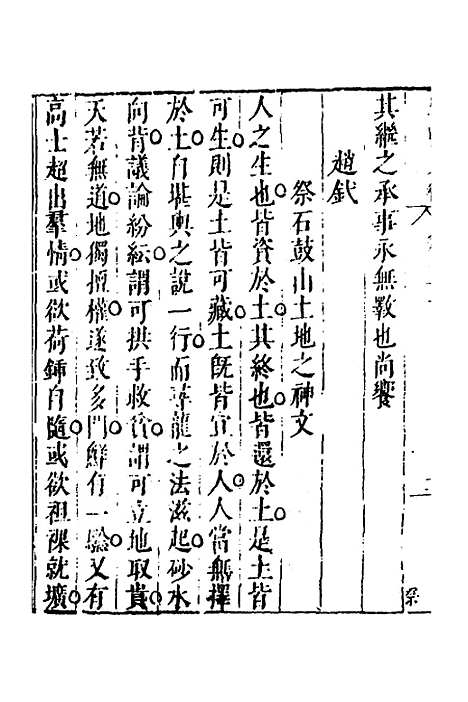 其繼之承事永無斁也尚饗
趙釴
祭石鼓山土地之神文
人之生也皆資於土其終也皆還於土是土皆
可生則是土皆可藏土旣皆宜於人人當無擇
於土自堪輿之說一行而葬龍之法滋起砂水
向背議論紛紜謂可拱手收貧謂可立地取貴
天若無道地獨擅權遂致多門鮮有一驗又有
高士超出羣情或欲荷鍤自隨或欲祖裸就壙